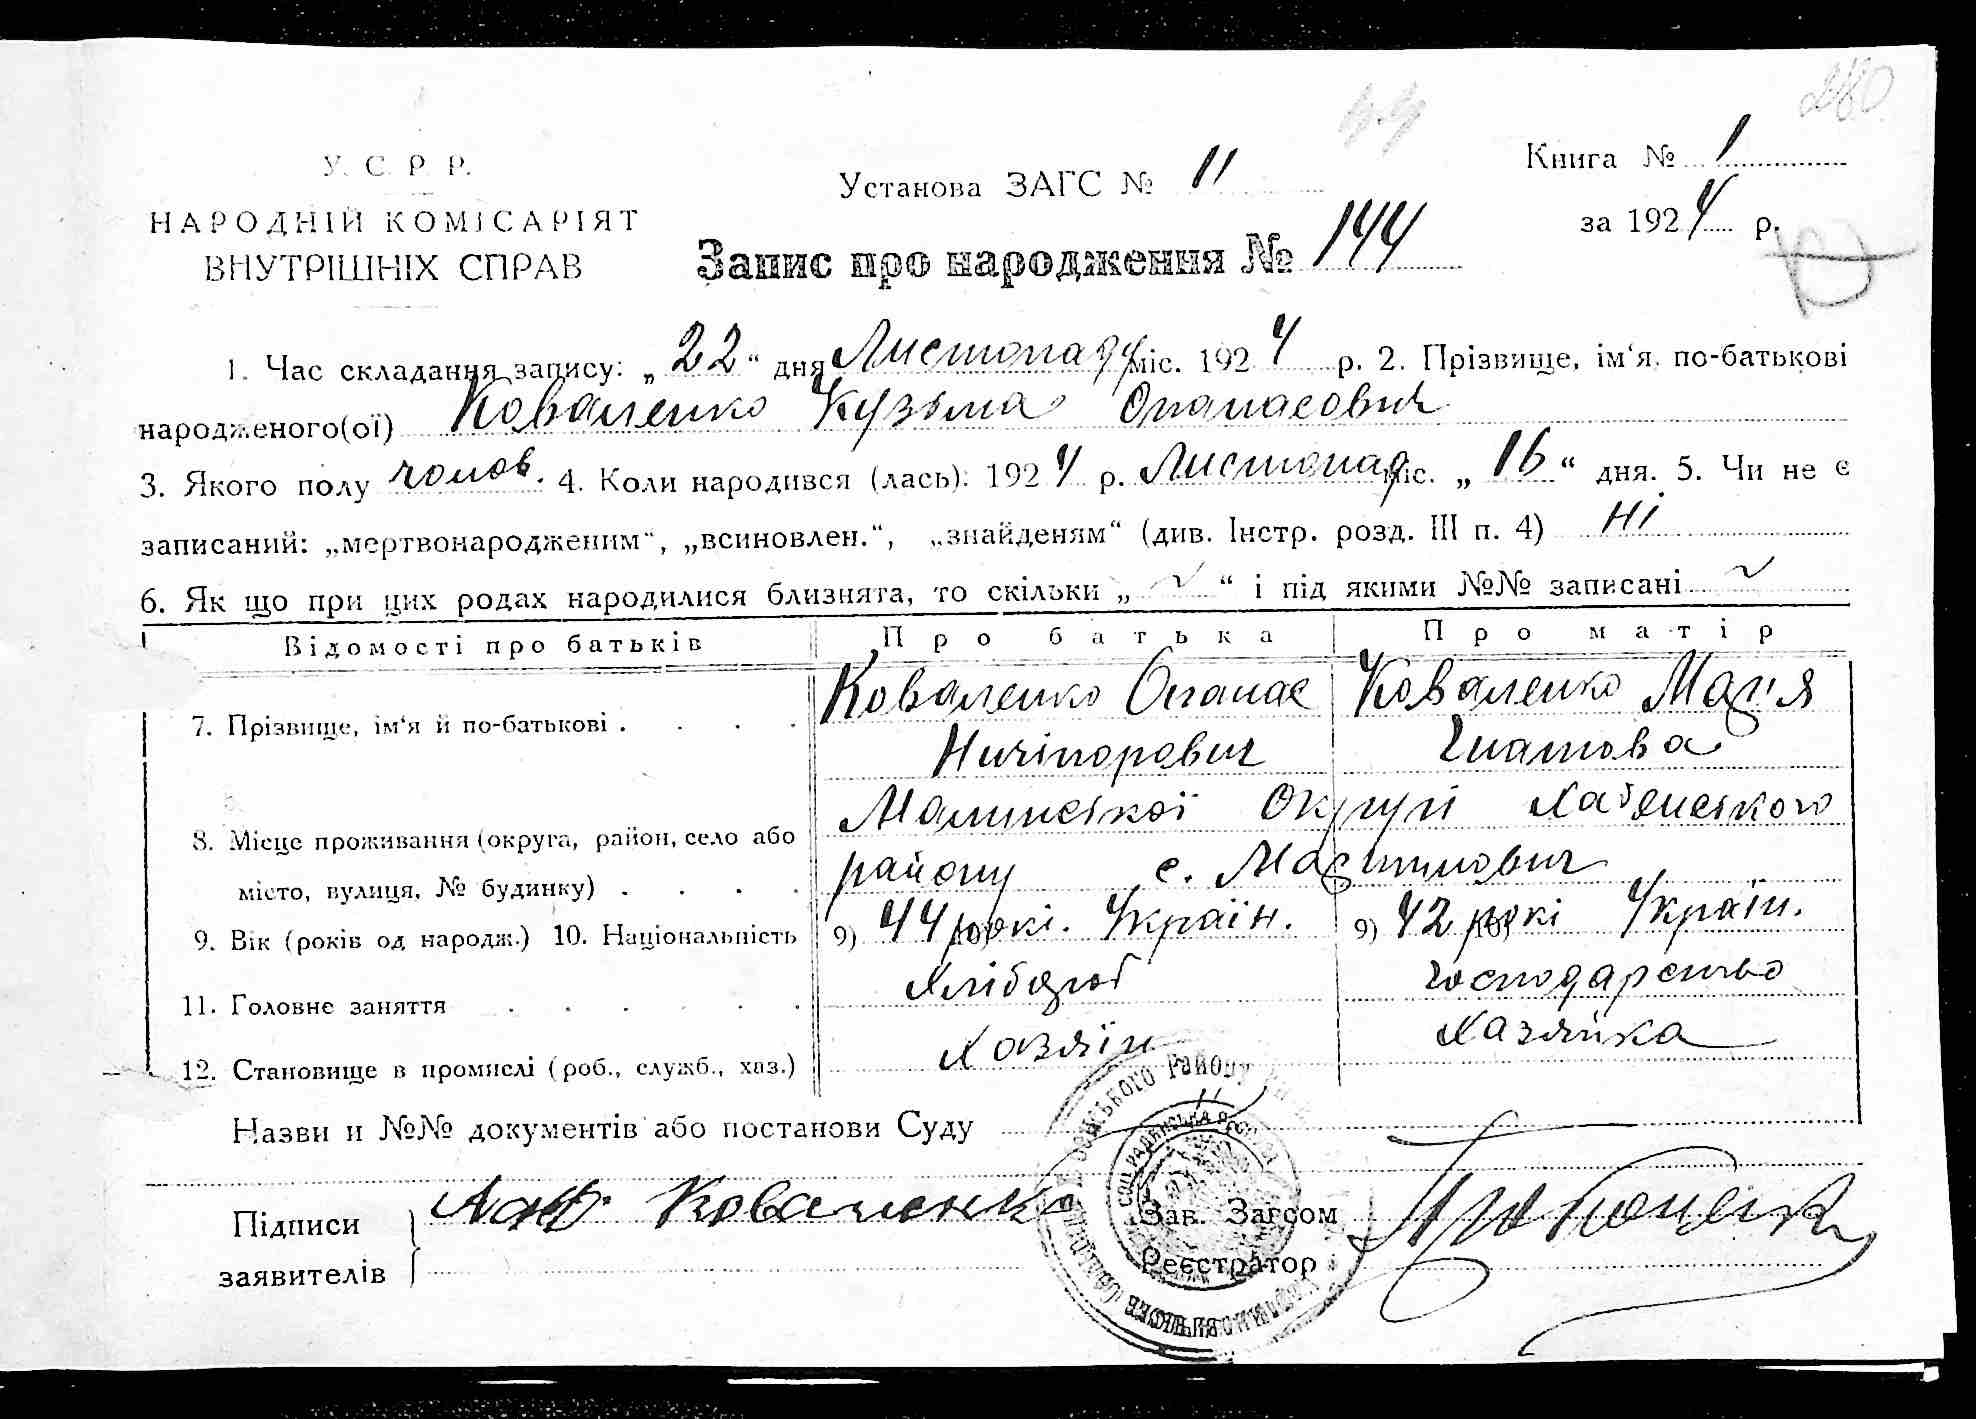 280
44
У. С. Р. Р.
НАРОДНІЙ КОМІСАРІЯТ
ВНУТРІШНІХ СПРАВ
Установа ЗАГС № 11
Книга № 1
за 1924 р.
Запис про народження № 144
1. Час складання запису: „ 22 “ дня Листопада міс. 1924 р. 2. Прізвище, ім‘я, по-батькові
народженого(ої) Коваленко Кузьма Опанасович
3. Якого полу чолов. 4. Коли народився (лась): 1924 р. Листопад міс. „ 16 “ дня. 5. Чи не є
записаний: „мертвонародженим“, „всиновлен.“, „знайденям“ (див. Інстр. розд. III п. 4) ні
6. Як що при цих родах народилися близнята, то скільки „ ~ “ і під якими №№ записані ~
Відомості про батьків Про батька Про матір
7. Прізвище, ім‘я й по-батькові . . . . Коваленко Опанас Коваленко Марія
Ничіпорович Гнатова
8. Місце проживання (округа, район, село або Малинської Округи Хабенського
місто, вулиця, № будинку) . . . . району с.
9. Вік (років од народж.) 10. Національність 9) 44 рокі. 10) Україн. 9) 42 рокі 10) Україн.
11. Головне заняття . . . . . Хлібороб Господарство
12. Становище в промислі (роб., служб., хаз.) Хазяїн Хазяйка
Назви и №№ документів або постанови Суду
Підписи
заявителів
Коваленко
Зав. Загсом
Реєстратор
району